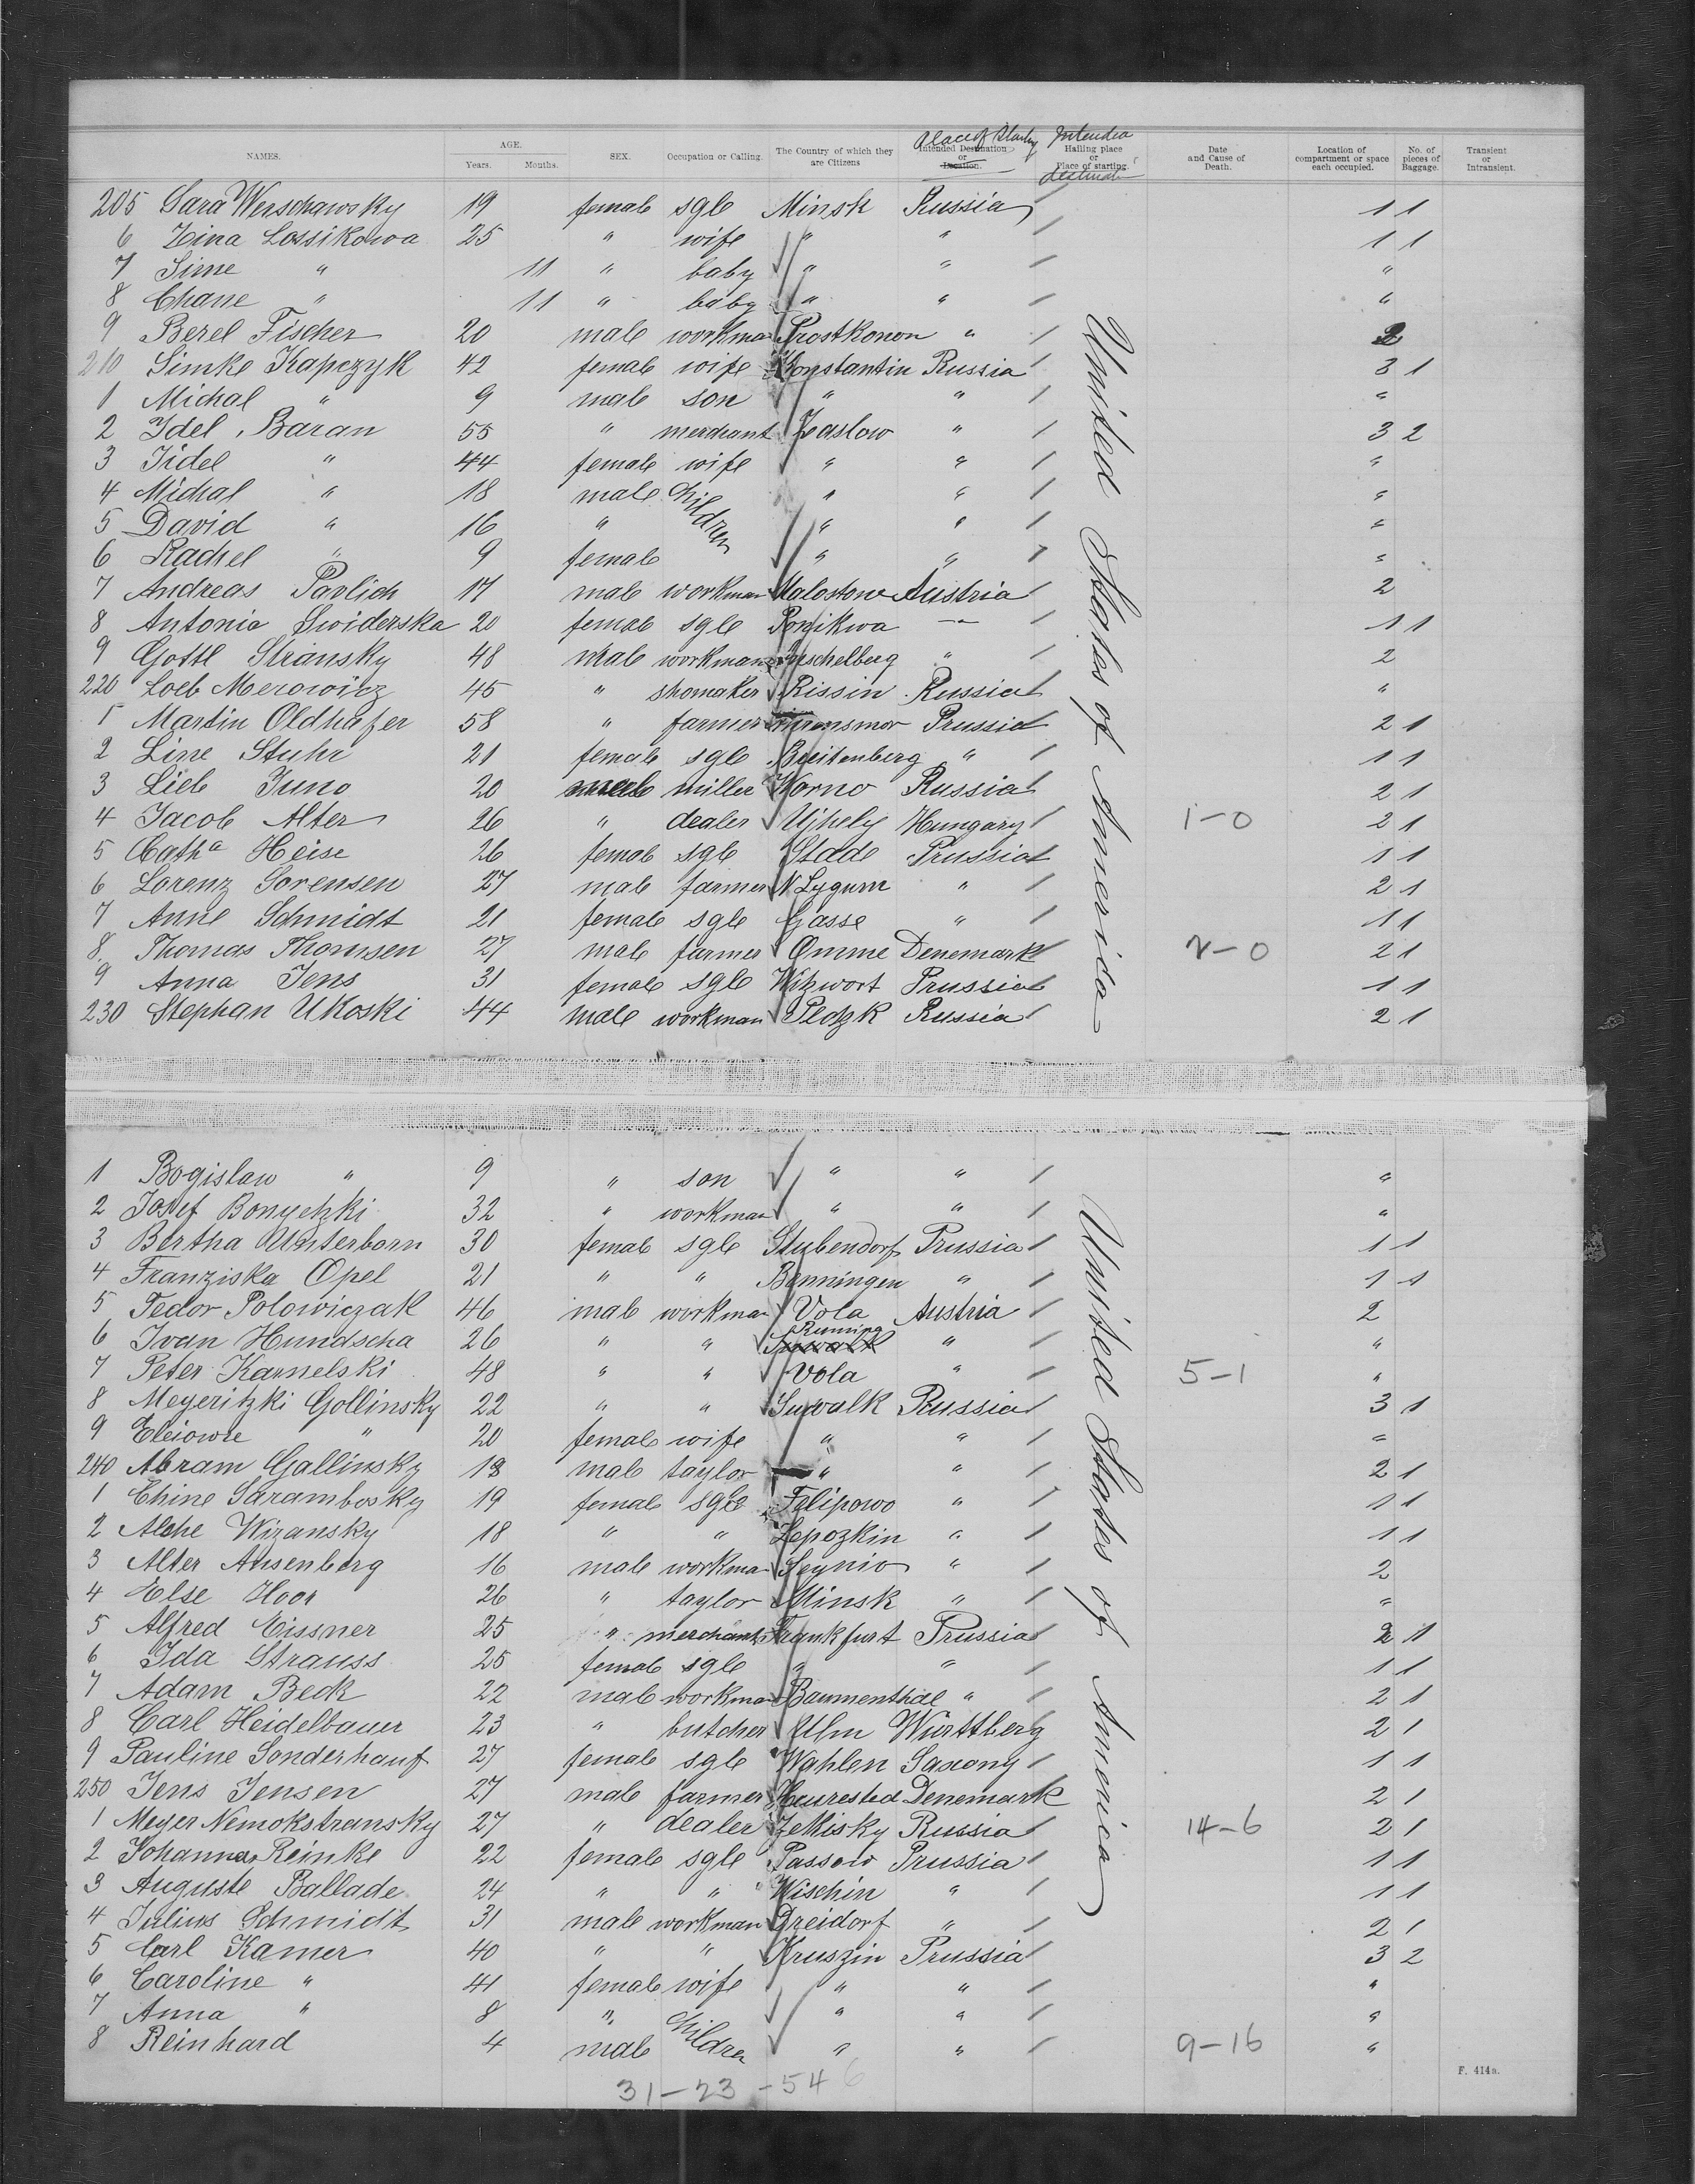 NAMES. AGE. Years. Months. SEX. Occupation or Calling. The Country of which they are Citizens Place of Intended Destination or Location. Intended Hailing place or Place of starting. Date and Cause of Death. Location of compartment or space each occupied. No. of pieces of Baggage. Transient or Intransient.
205 Sara Werschawsky 19 female sgle Minsk Russia 1 1
6 Zina Lossikowa 25 " wife " " 1 1
7 Sime " 11 " baby " " "
8 Chane " 11 " baby " " "
9 Berel Fischer 20 male workman Prostkonon " 2
210 Simke Kapczyk 42 female wife Konstantin Russia 3 1
1 Michal " 9 male son " " "
2 Idel Baran 55 " merchant Zaslow " 3 2
3 Jidel " 44 female wife " " "
4 Michal " 18 male children " " "
5 David " 16 " " " "
6 Rachel " 9 female " " "
7 Andreas Pavlich 17 male workman Malostow Austria 2
8 Antonia Swiderska 20 female sgle Ponikwa " 1 1
9 Gottl Stransky 48 male workman " 2
220 Loeb Merowicz 45 " shomaker Rissin Russia "
1 Martin Oldhafer 58 " farmer Prussia 2 1
2 Line Stuhr 21 female sgle Breitenberg " 1 1
3 Lieb Juno 20 male miller Korno Russia 2 1
4 Jacob Alter 26 " dealer Ujhely Hungary 1-0 2 1
5 Catha Heise 26 female sgle Stade Prussia 1 1
6 Lorenz Sorensen 27 male farmer N Lygum " 2 1
7 Anne Schmidt 21 female sgle Gasse " 1 1
8 Thomas Thomsen 27 male farmer Omme Denemark 2-0 2 1
9 Anna Jens 31 female sgle Witzwort Prussia 1 1
230 Stephan Ukoski 44 male workman Plozk Russia 2 1
United States of America
1 Bogislaw " 9 " son " " "
2 Josef Bonyetzki 32 " workman " " "
3 Bertha Unterborn 30 female sgle Stubendorf Prussia 1 1
4 Franziska Opel 21 " " Benningen " 1 1
5 Fedor Polowiczak 46 male workman Vola Austria 2
6 Ivan Hundscha 26 " " Suwalk " "
7 Peter Karnelski 48 " " Vola " 5-1 "
8 Meyeritzki Gollinsky 22 " " Suwalk Russia 3 1
9 Eleiowie " 20 female wife " " "
240 Abram Gallinsky 18 male taylor " " 2 1
1 Chine Sarambosky 19 female sgle Felipowo " 1 1
2 Alche Wizansky 18 " " Lepozkin " 1 1
3 Alter Ansenberg 16 male workman Seynio " 2
4 Else Hoor 26 " taylor Minsk " "
5 Alfred Eissner 25 " merchant Frankfurt Prussia 2 1
6 Ida Strauss 25 female sgle " " 1 1
7 Adam Beck 22 male workman Baumenthal " 2 1
8 Carl Heidelbauer 23 " butcher Ulm Württberg 2 1
9 Pauline Sonderhauf 27 female sgle Wahlen Saxony 1 1
250 Jens Jensen 27 male farmer Heurested Denemark 2 1
1 Meyer Nemokstransky 27 " dealer Zellisky Russia 14-6 2 1
2 Johanna Reinke 22 female sgle Passow Prussia 1 1
3 Auguste Ballade 24 " " Wischin " 1 1
4 Julius Schmidt 31 male workman Greidorf " 2 1
5 Carl Kamer 40 " " Kruszin Prussia 3 2
6 Caroline " 41 female wife " " "
7 Anna " 8 " children " " "
8 Reinhard 4 male " " 9-16 "
United States of America
31-23-54 6
F. 414a.